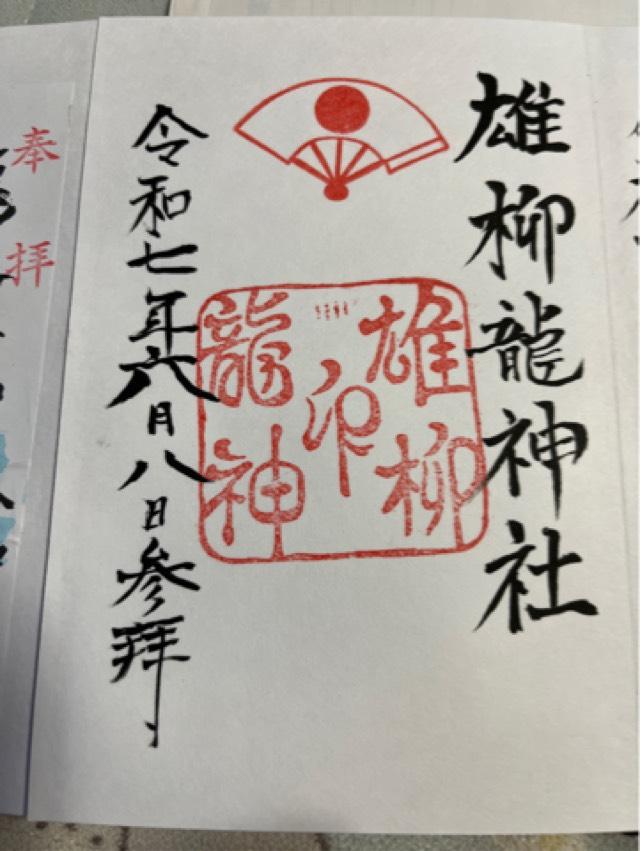 雄柳龍神社
雄柳
印
龍神
令和七年六月八日参拝
奉拝